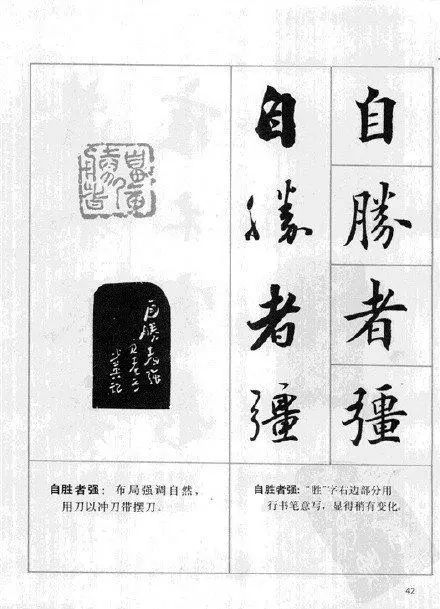 自勝者彊
自勝者彊
自胜者强：布局强调自然，
用刀以冲刀带摆刀。
自胜者强：“胜”字右边部分用
行书笔意写，显得稍有变化。
42